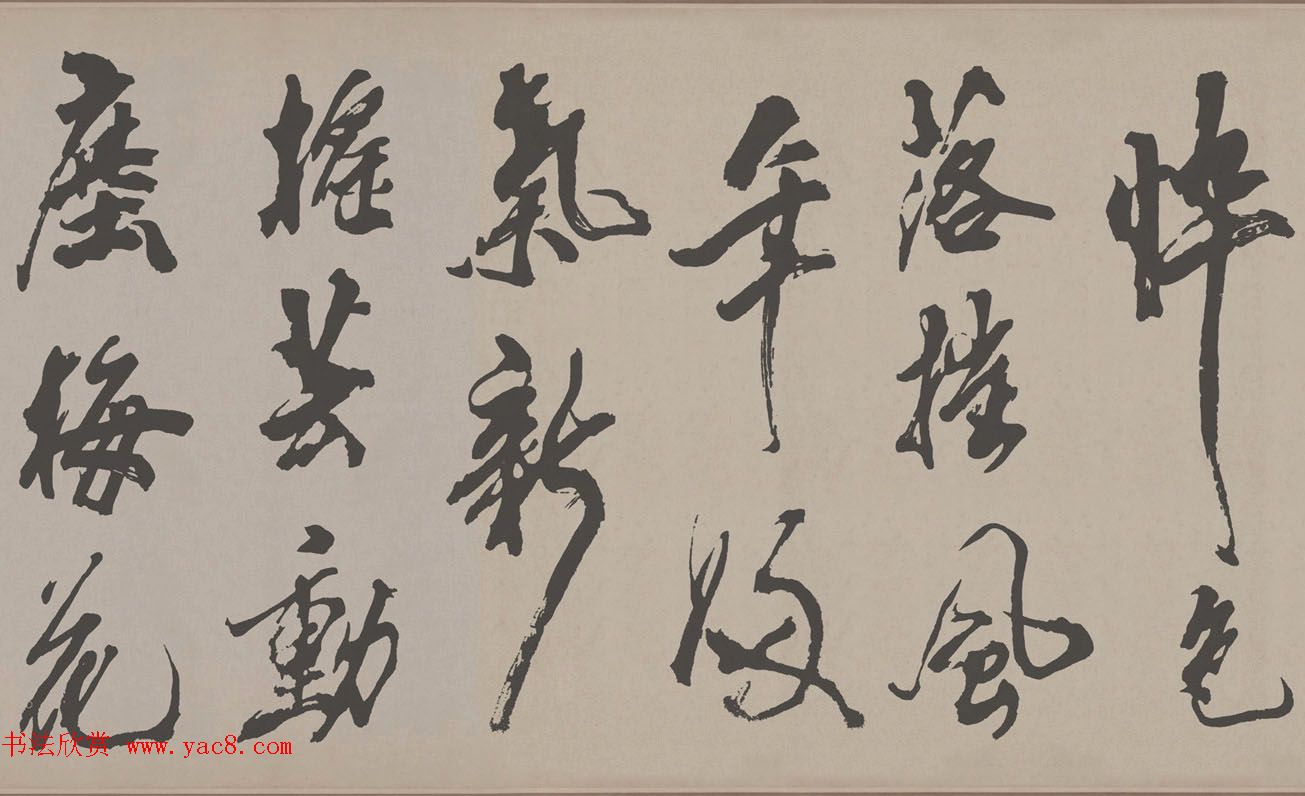 忰色
落摧風
年歸
氣新
搖芸動
塵梅花
书法欣赏 www.yac8.com